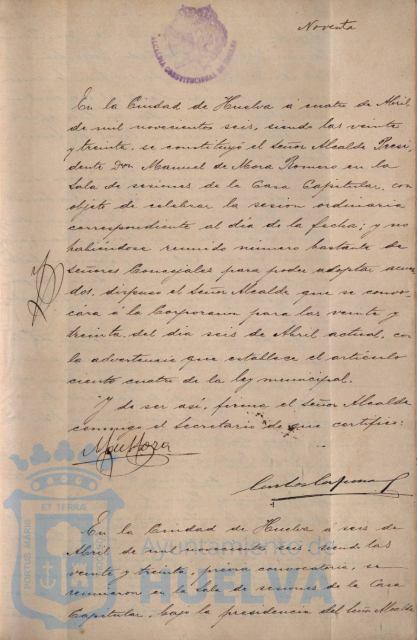 Noventa
ALCALDIA CONSTITUCIONAL DE HUELVA
En la Ciudad de Huelva á cuatro de Abril
de mil novecientos seis, siendo las veinte
y treinta, se constituyó el Señor Alcalde Presi
dente Don Manuel de Mora Romero en la
Sala de sesiones de la Casa Capitular, con
objeto de celebrar la sesion ordinaria
correspondiente al dia de la fecha; y no
habiéndose reunido número bastante de
Señores Concejales para poder adoptar acuer
dos, dispuso el Señor Alcalde que se convo
cara á la Corporacion para las veinte y
treinta del dia seis de Abril actual, con
la advertencia que establece el artículo
ciento cuatro de la ley municipal.
Y de ser así, firma el Señor Alcalde
conmigo el Secretario de que certifico:
En la Ciudad de Huelva á seis de
Abril de mil novecientos seis, siendo las
veinte y treinta, previa convocatoria, se
reunieron en la Sala de sesiones de la Casa
Capitular, bajo la presidencia del Señor Alcalde
PORTUS MARIS ET TERRAE
Ayuntamiento de
HUELVA